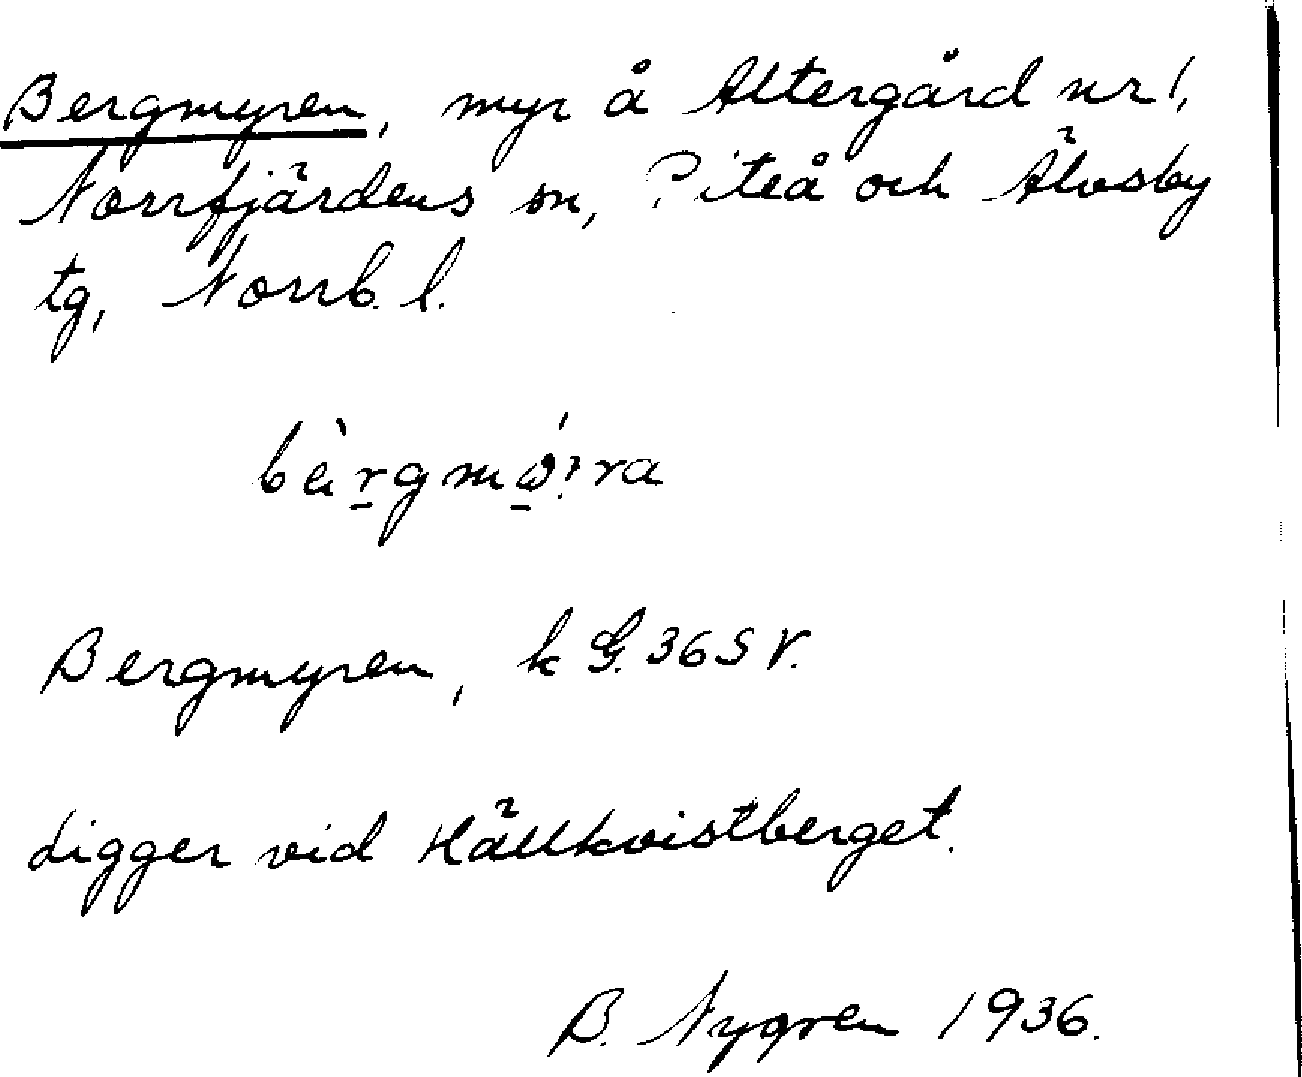 Bergmyren, myr å Altergård nr 1,
Norrfjärdens sn, Piteå och Älvsby
tg, Norrb. l.
bèrgmǿi̯ra
Bergmyren, k G. 36 S V.
Ligger vid Hällkvistberget.
B. Nygren 1936.